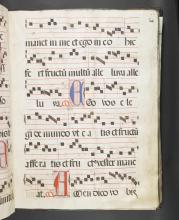 manet in me et ego in eo hic
fe rt fructū multū alle luia alle
lu ya. E go vos e le
gi de mundo ut e a tis et fructū
affe ra tis et fru ct' vester mane
at. A men dico vo bis